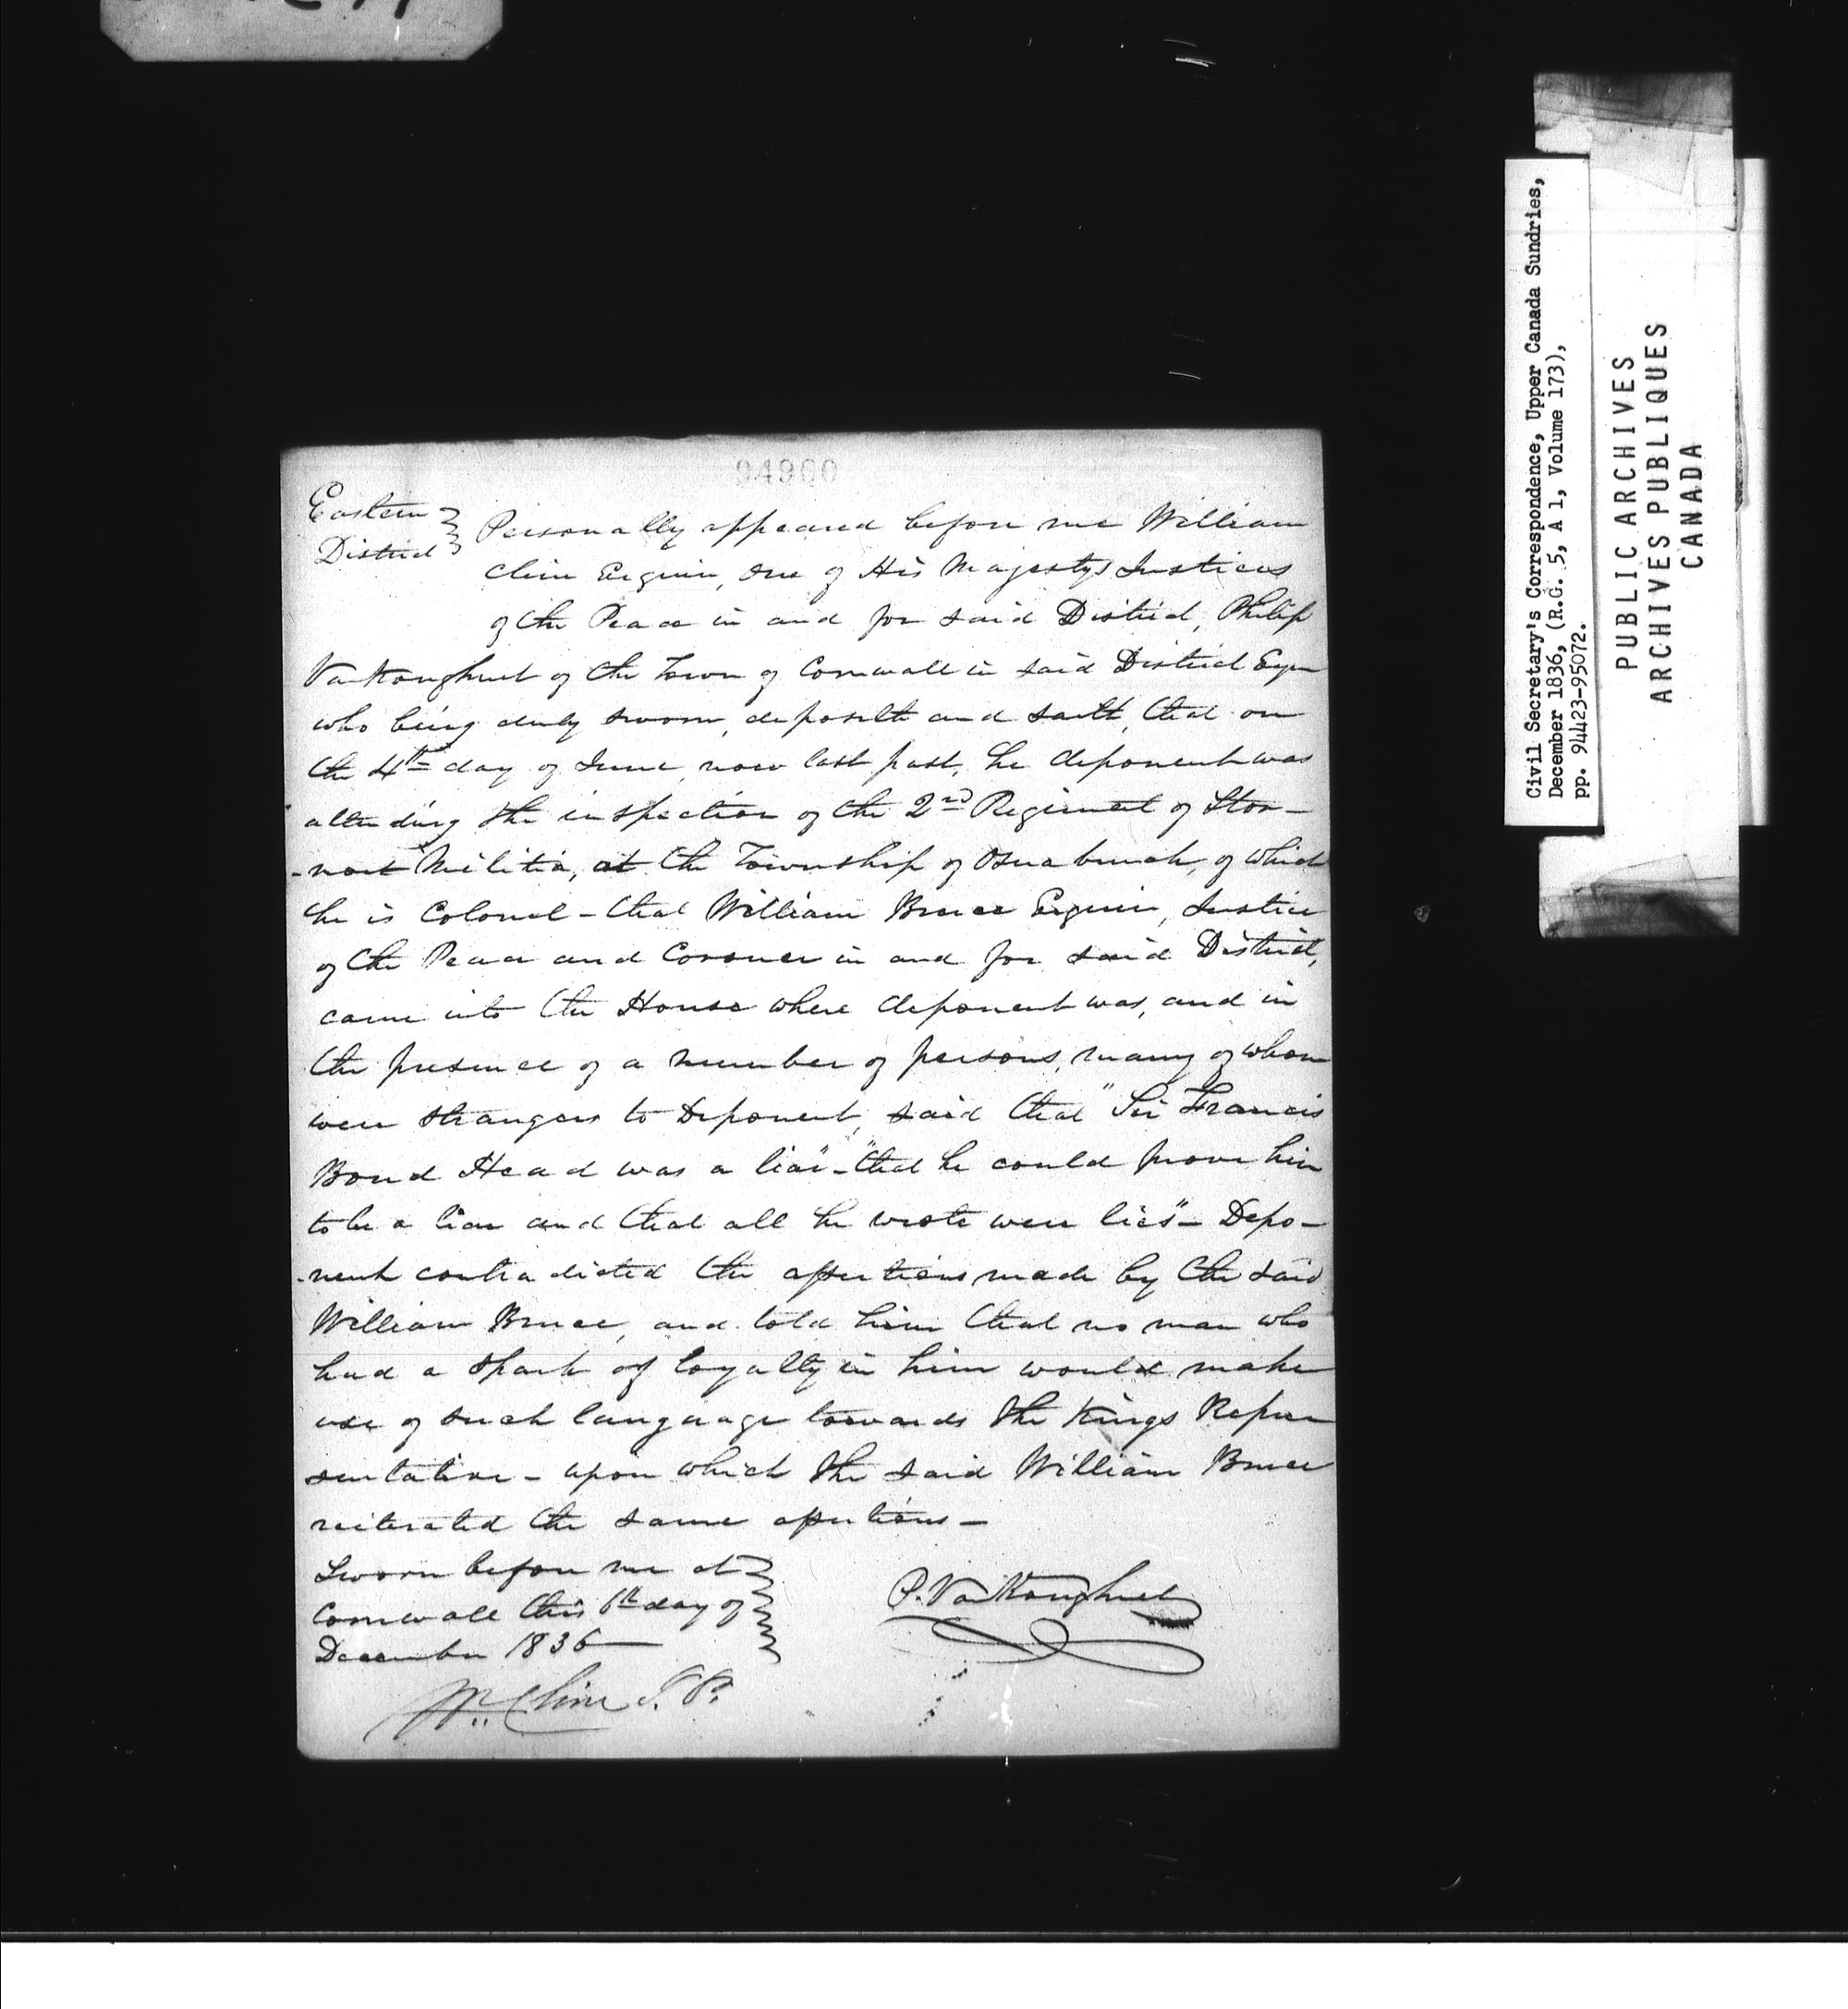 94960
Eastern
District
Personally appeared before me William
Cline Esquire, one of His Majestys Justices
of the Peace in and for said District, Philip
VanKoughnet of the Town of Cornwall in said District Esqr
who being duly sworn, deposeth and saith, that on
the 4th day of June, now last past, he deponent was
attending the inspection of the 2nd Regiment of Stor-
-mont Militia, at the Township of Osnabruck, of which
he is Colonel - that William Bruce Esquire, Justice
of the Peace and Coroner in and for said District,
came into the House where deponent was, and in
the presence of a number of persons, many of whom
were strangers to Deponent, said that "Sir Francis
Bond Head was a liar" - "that he could prove him
to be a liar and that all he wrote were lies" - Depo-
-nent contradicted the assertions made by the said
William Bruce, and told him that no man who
had a spark of loyalty in him would make
use of such language towards the Kings Repre
sentative - upon which the said William Bruce
reiterated the same assertions -
Sworn before me at
Cornwall this 6th day of
December 1836
P. VanKoughnet
Wm Cline J. P.
Civil Secretary's Correspondence, Upper Canada Sundries,
December 1836, (R.G. 5, A 1, Volume 173),
pp. 94423-95072.
PUBLIC ARCHIVES
ARCHIVES PUBLIQUES
CANADA